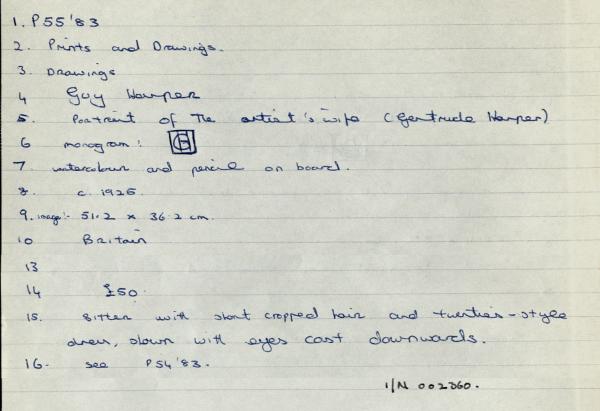 1. P55'83
2. Prints and Drawings.
3. Drawings
4 Guy Harper
5. Portrait of The artist's wife (Gertrude Harper)
6 monogram:
7. watercolour and pencil on board.
8. c. 1925.
9. image:- 51.2 x 36.2 cm.
10 Britain
13
14 £50.
15. Sitter with short cropped hair and twenties-style
dress, shown with eyes cast downwards.
16. see P54'83.
I/N 002360.